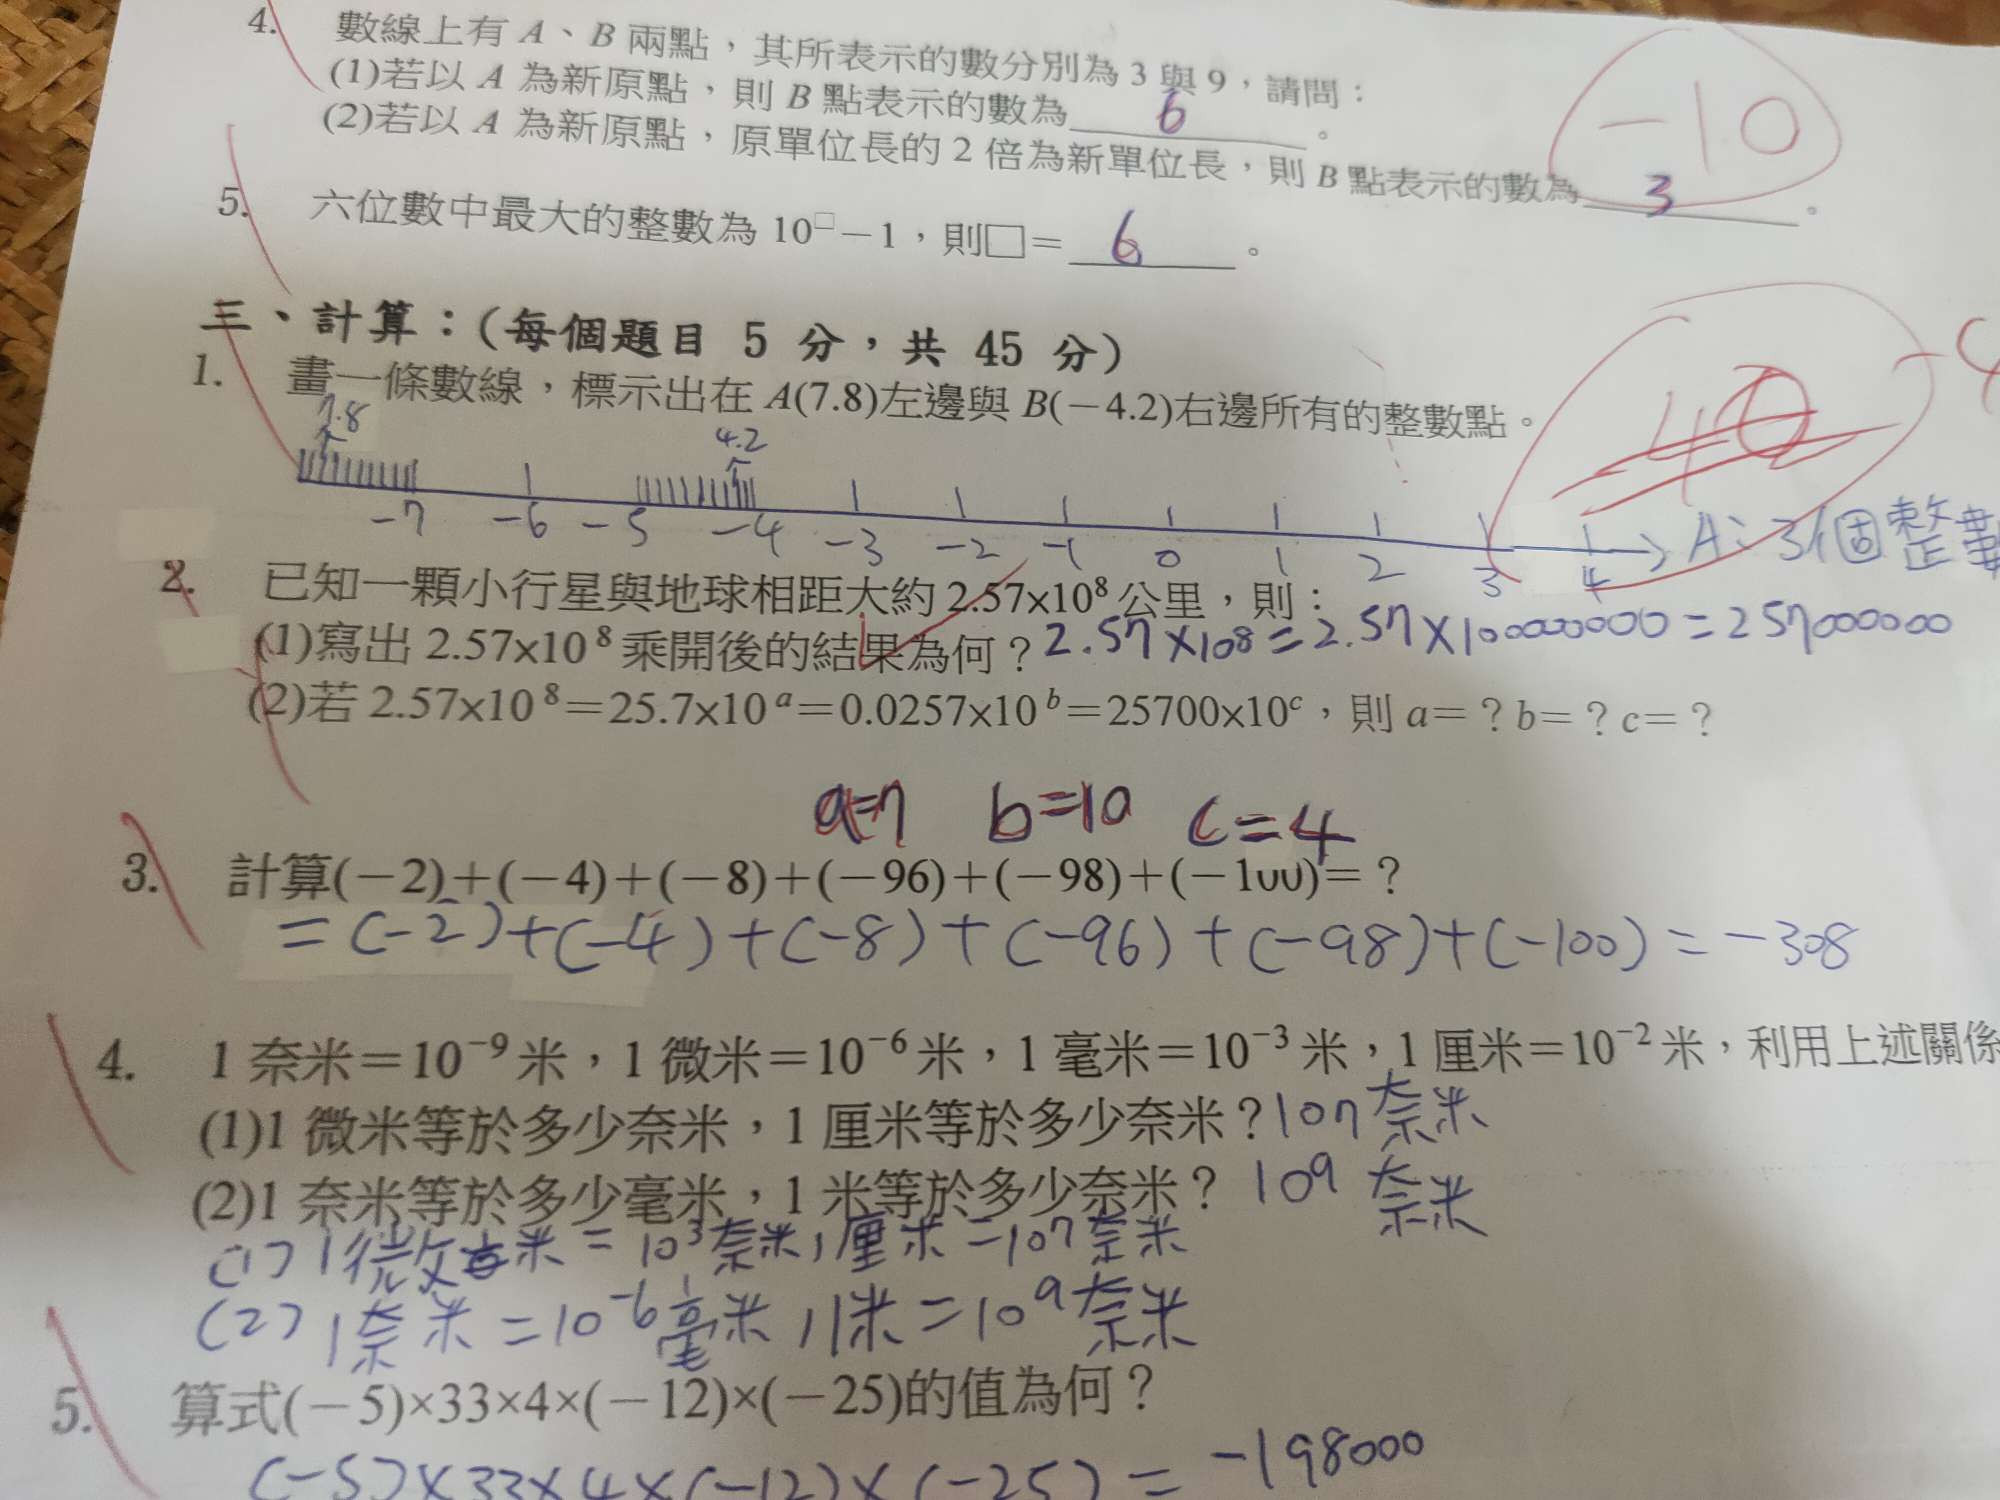 4. 數線上有 A、B 兩點，其所表示的數分別為 3 與 9，請問：
(1)若以 A 為新原點，則 B 點表示的數為 6 。
(2)若以 A 為新原點，原單位長的 2 倍為新單位長，則 B 點表示的數為 3 。
-10
5. 六位數中最大的整數為 10□－1，則□＝ 6 。
三、計算：(每個題目 5 分，共 45 分)
1. 畫一條數線，標示出在 A(7.8)左邊與 B(－4.2)右邊所有的整數點。
40
7.8 4.2
-7 -6 -5 -4 -3 -2 -1 0 1 2 3 4 A: 31個整
2. 已知一顆小行星與地球相距大約 2.57×10⁸ 公里，則：
(1)寫出 2.57×10⁸ 乘開後的結果為何？ 2.57×10⁸=2.57×100000000=257000000
(2)若 2.57×10⁸＝25.7×10ᵃ＝0.0257×10ᵇ＝25700×10ᶜ，則 a＝？b＝？c＝？
a=7 b=10 c=4
3. 計算(－2)＋(－4)＋(－8)＋(－96)＋(－98)＋(－100)＝？
=(-2)+(-4)+(-8)+(-96)+(-98)+(-100)=-308
4. 1 奈米＝10⁻⁹ 米，1 微米＝10⁻⁶ 米，1 毫米＝10⁻³ 米，1 厘米＝10⁻² 米，利用上述關係
(1)1 微米等於多少奈米，1 厘米等於多少奈米？ 10⁷ 奈米
(2)1 奈米等於多少毫米，1 米等於多少奈米？ 10⁹ 奈米
(1) 1微米=10³奈米,厘米=10⁷奈米
(2) 1奈米=10⁻⁶毫米,1米=10⁹奈米
5. 算式(－5)×33×4×(－12)×(－25)的值為何？
(-5)×33×4×(-12)×(-25)=-198000